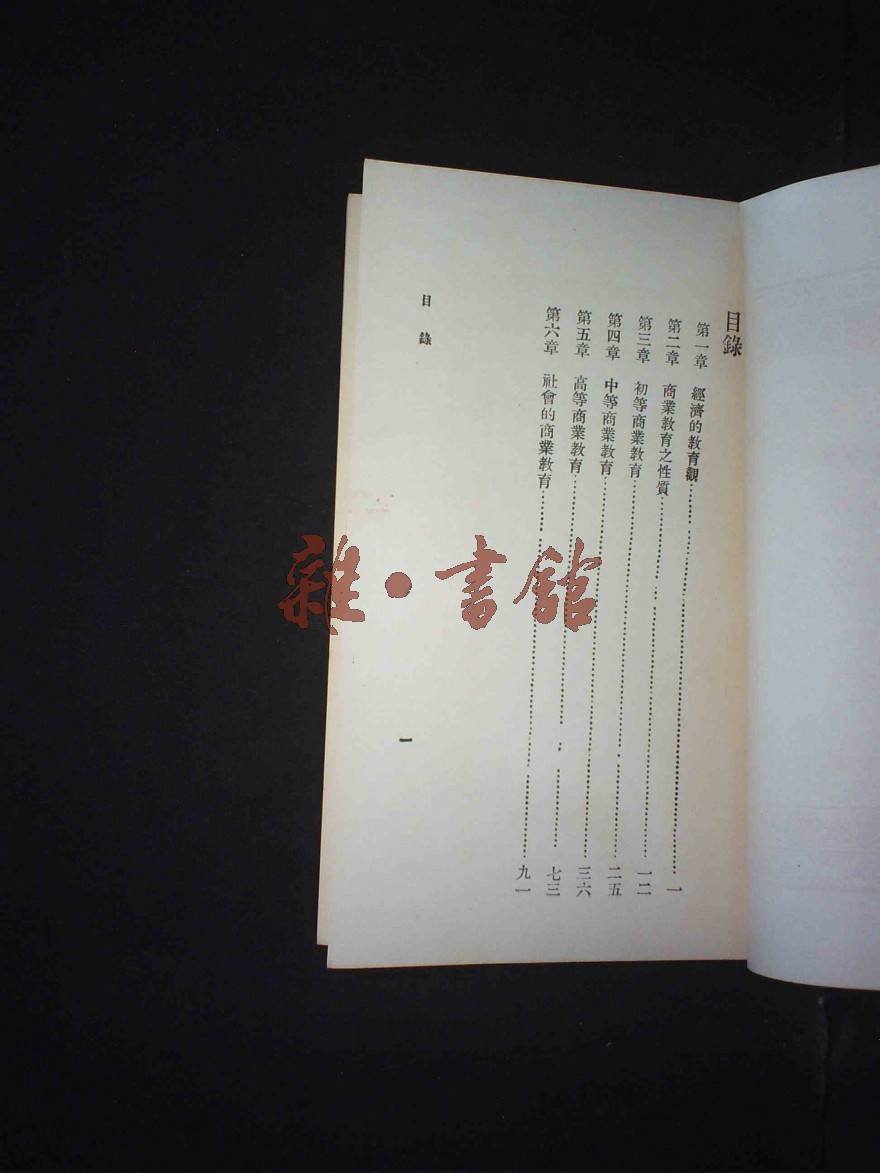 目錄
第一章 經濟的教育觀…………一
第二章 商業教育之性質…………一二
第三章 初等商業教育…………二五
第四章 中等商業教育…………三六
第五章 高等商業教育…………七三
第六章 社會的商業教育…………九一
目錄
一
雜·書館